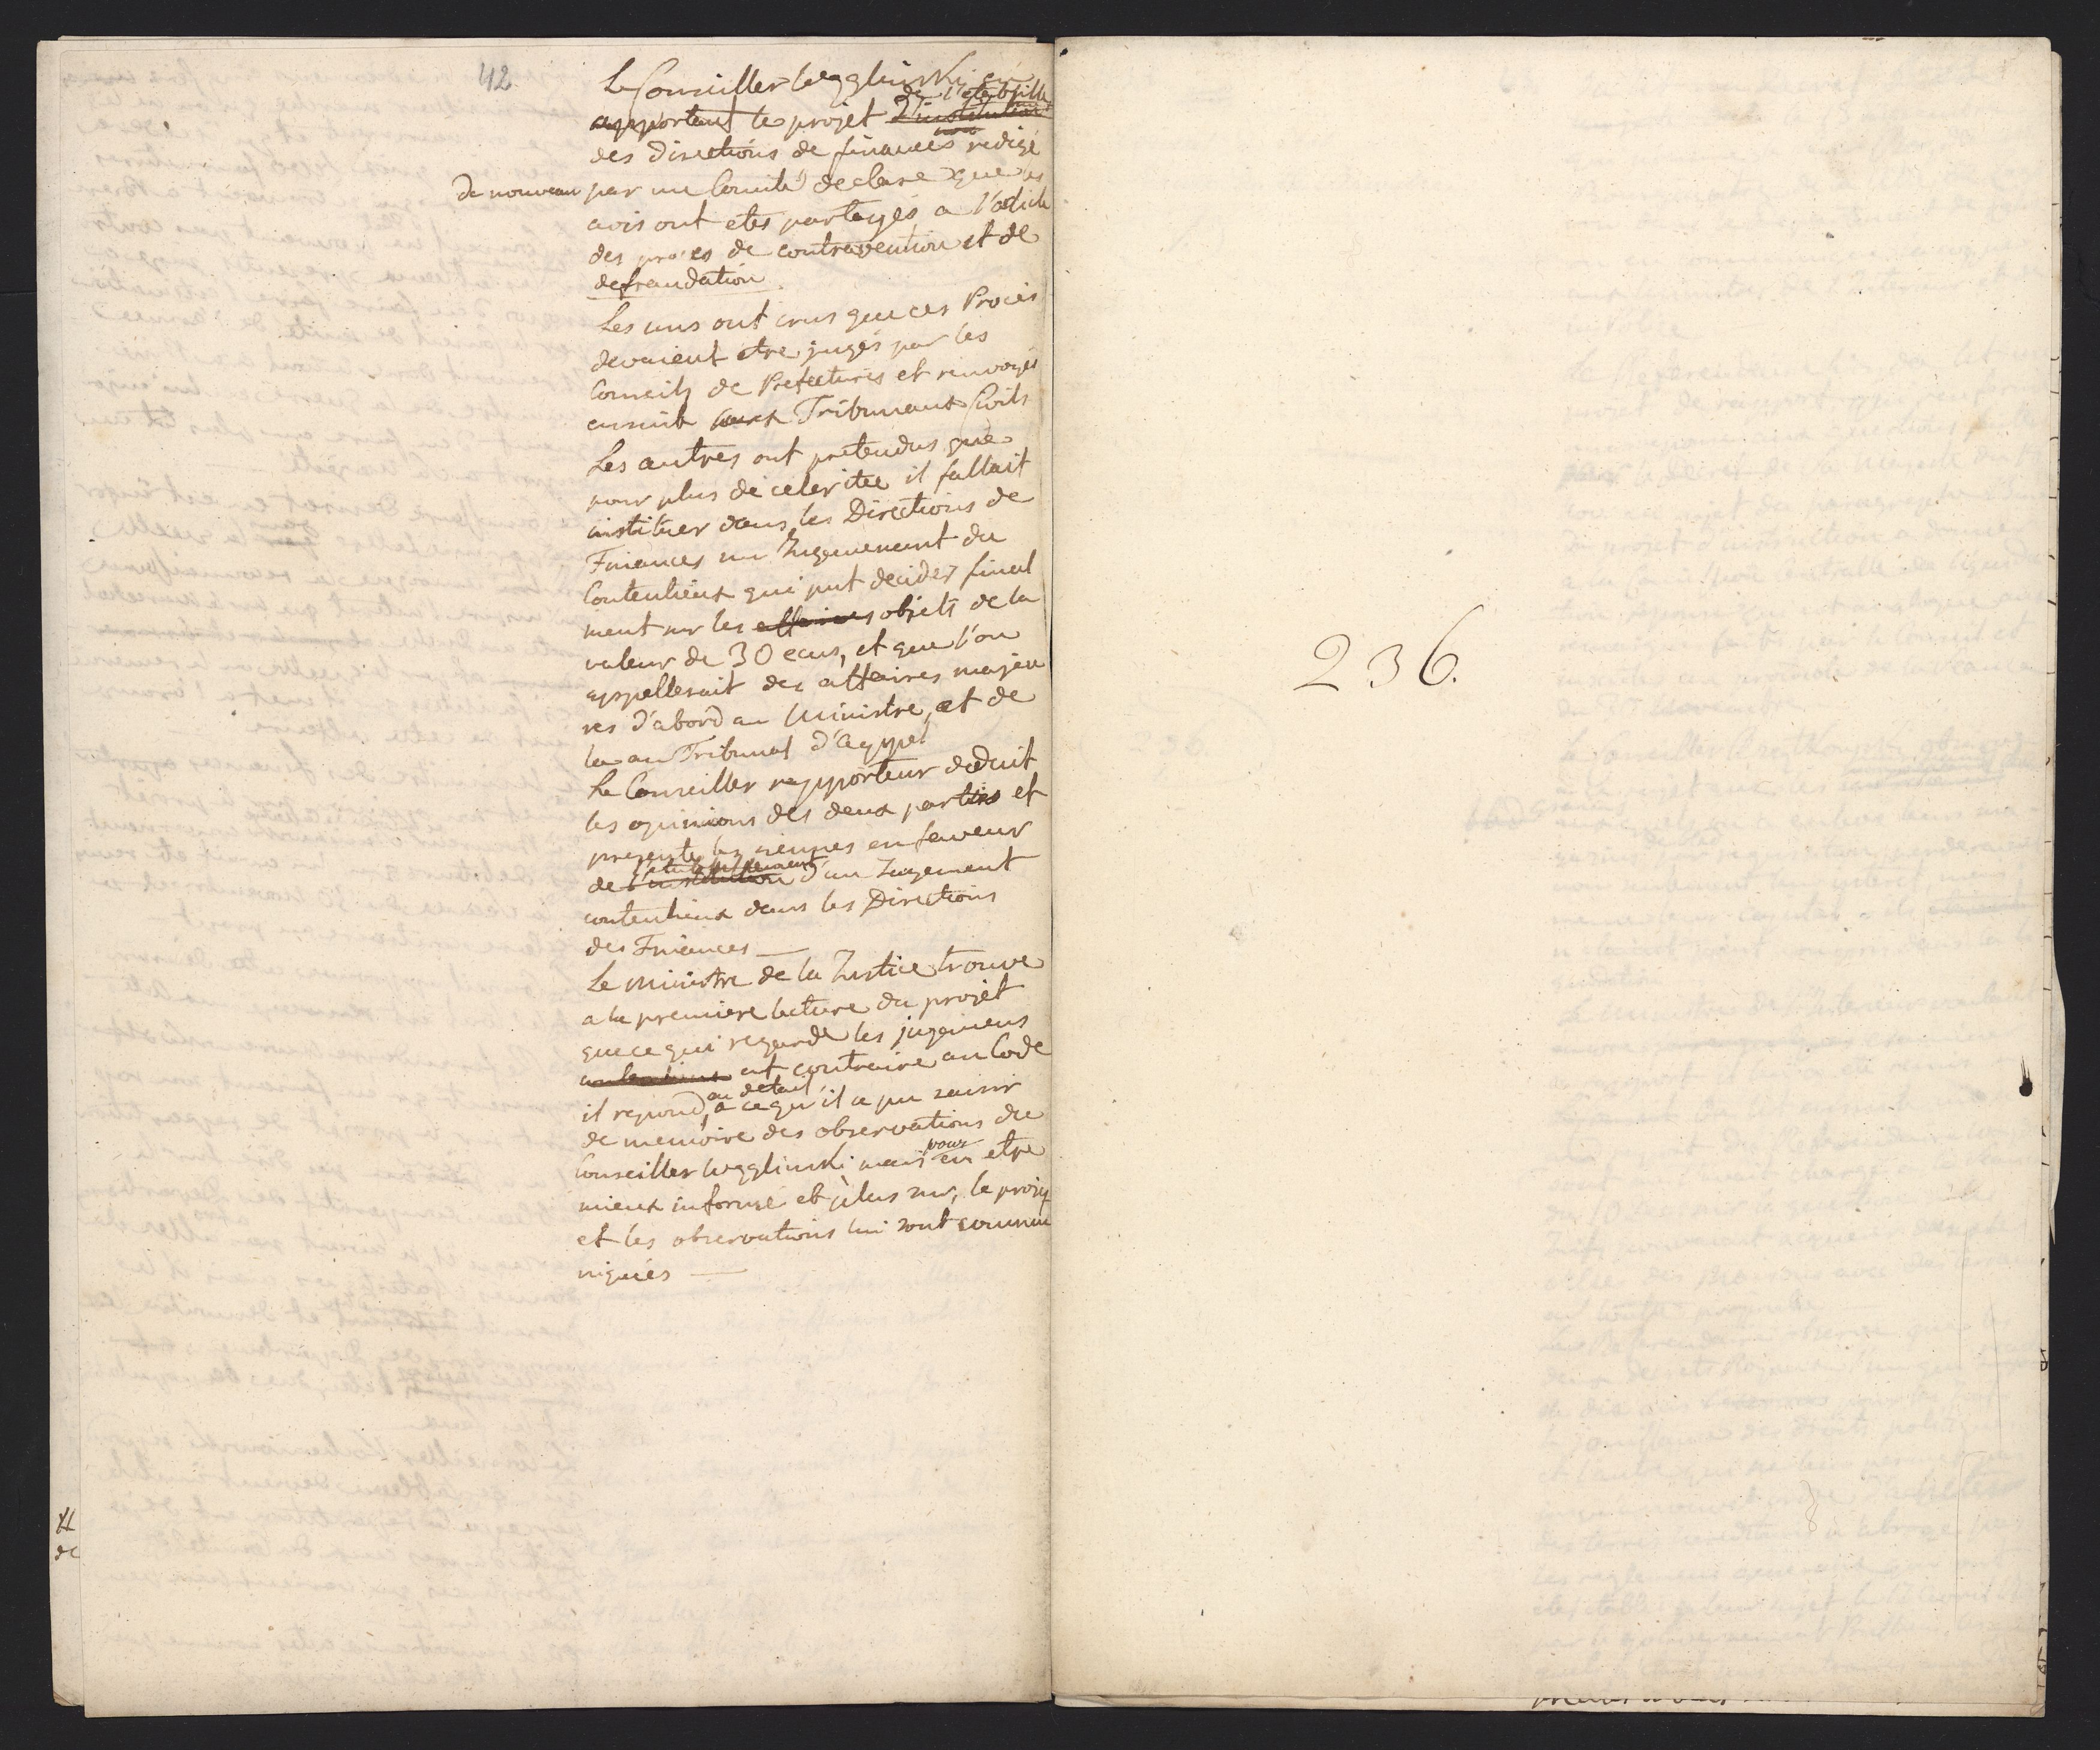 42
Le Conseiller Węgglinski en
de l'etablisse
apportant le projet d'institution
des directions de finances redigé
de nouveau par un Comité declare que les
avis ont etés partagés a l'article
des proces de contravention et de
defraudation.
Les uns ont crus que ces Procès
devaient etre jugés par les
Conseils de Prefectures et renvoyés
ensuite aux Tribunaux Civils
Les autres ont pretendus que
pour plus de celeritée il fallait
instituer dans les Directions de
Finances un Jugement du
Contentieux qui put decider final
ment sur les affaires objets de la
valeur de 30 ecus, et que l'on
appellerait des affaires majeu
res d'abord au Ministre, et de
la au Tribunal d'appel
Le Conseiller rapporteur deduit
les opinions des deux parties et
presente les siennes en faveur
l'etablissement
de l'institution d'un Jugement
contentieux dans les Directions
des Finances —
Le Ministre de la Justice trouve
a la premiere lecture du projet
que ce qui regarde les jugemens
contentieux est contraire au Code
au detail
il repond, a ce qu'il a pu saisir
de memoire des observations du
pour
Conseiller Węgglinski mais en etre
mieux informé et plus sur, le projet
et les observations lui sont commu
niquées —
236.